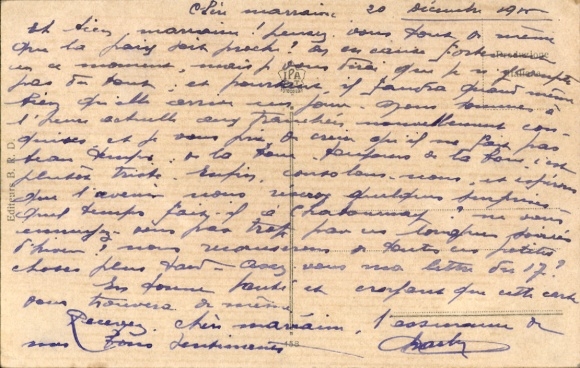 Chère marraine 20 décembre 1915
Et bien marraine ! pensez vous tout de même
que la paix soit proche ? on en cause fortement
en ce moment mais je vous dirai que je n'y compte
pas du tout, et pourtant, il faudra quand même
bien qu'elle arrive un jour. nous sommes à
l'heure actuelle aux tranchées nouvellement con-
quises et je vous prie de croire qu'il ne fait pas
beau temps. de la boue toujours de la boue, c'est
plutôt triste. Enfin, consolons-nous, et espérons
que l'avenir nous réserve quelques surprises.
quel temps fait-il à ? ne vous
ennuyez-vous pas trop par ces longues soirées
d'hiver ? nous recauserons de toutes ces petites
choses plus tard - avez vous ma lettre du 17 ?
En bonne santé et croyant que cette carte
vous trouvera de même
Recevez chère marraine, l'assurance de
mes bons sentiments
IPA
Editeurs B. R. D.